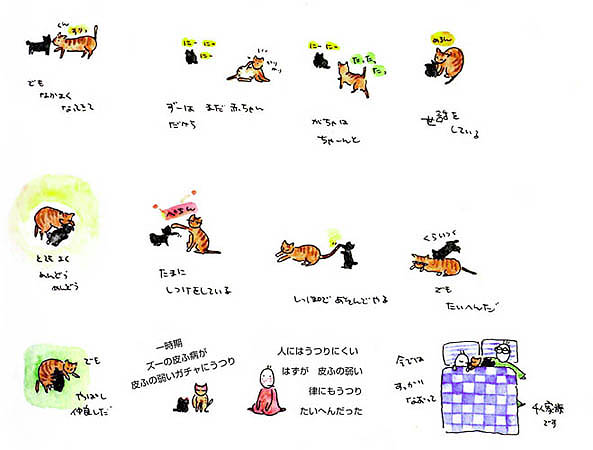 くん
すりっ
でも
なかよく
なってきて
にー にー
にー
ずーは まだ 赤ちゃん
だから
にー にー
にー
だっ だっ
だっ
がちゃは
ちゃーんと
世話を
している
とても よく
めんどう
ぺちん
たまに
しつけをしている
しっぽで あそんでやる
くらいつく
でも
たいへんだ
でも
やはり
仲良しだ
一時期
ズーの皮ふ病が
皮ふの弱いガチャにうつり
人にはうつりにくい
はずが 皮ふの弱い
律にもうつり
たいへんだった
今では
すっかり
なおって
4人家族
です